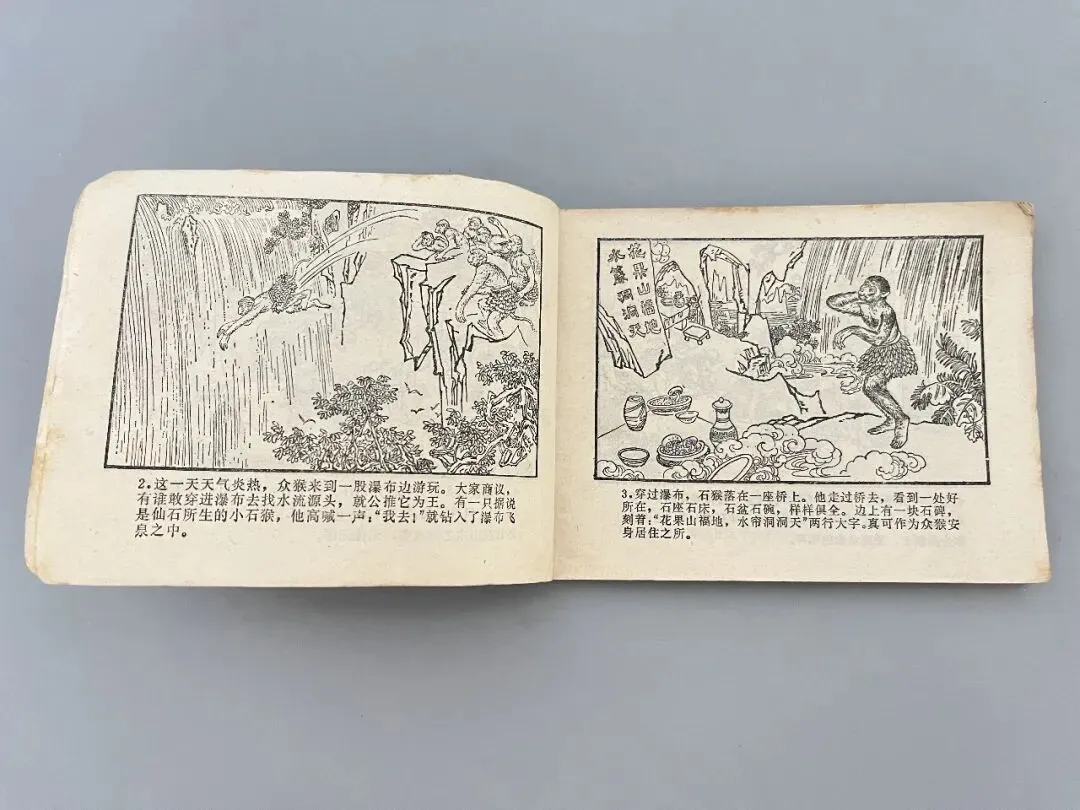 2.这一天天气炎热，众猴来到一股瀑布边游玩。大家商议，
有谁敢穿进瀑布去找水流源头，就公推它为王。有一只据说
是仙石所生的小石猴，他高喊一声：“我去！”就钻入了瀑布飞
泉之中。
花果山福地
水簾洞洞天
3.穿过瀑布，石猴落在一座桥上。他走过桥去，看到一处好
所在，石座石床，石盆石碗，样样俱全。边上有一块石碑，
刻着：“花果山福地，水帘洞洞天”两行大字。真可作为众猴安
身居住之所。